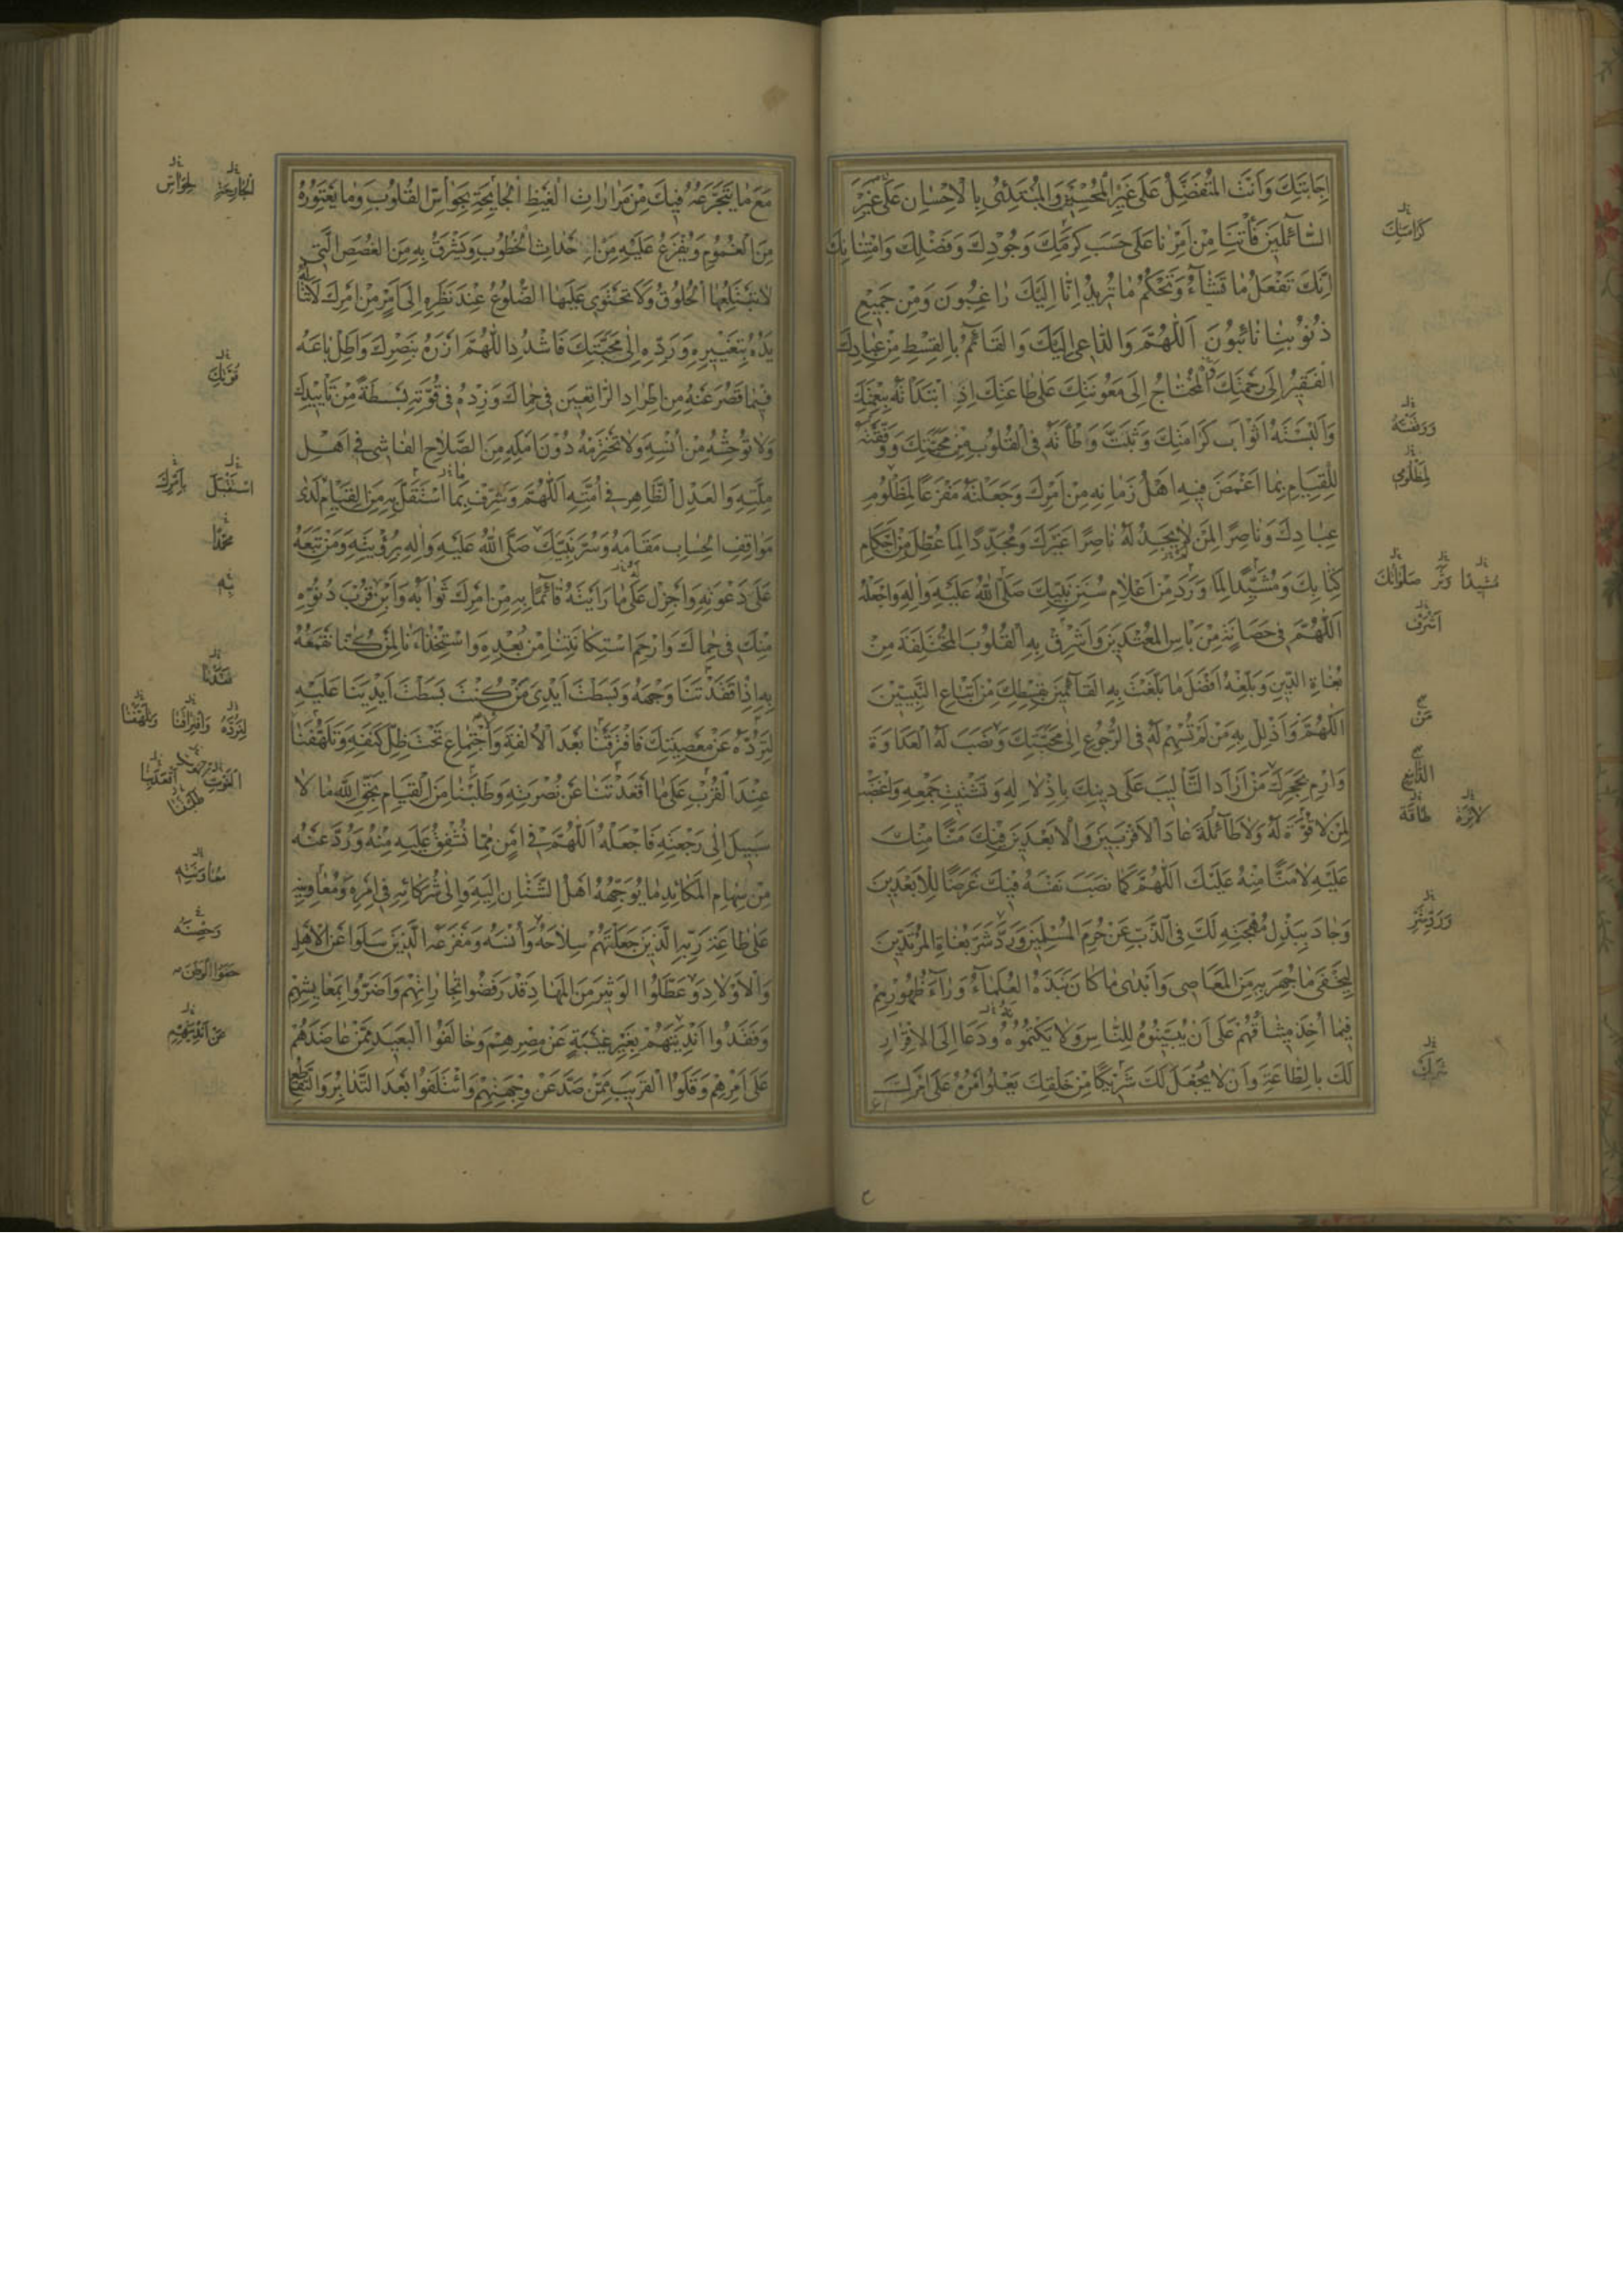 اِجابَتِكَ وَاَنْتَ الْمُتَفَضِّلُ عَلى غَيْرِ الْمُحْسِنينَ وَالْمُبْتَدِئُ بِالْاِحْسانِ عَلى غَيْرِ
السّآئِلينَ فَأْتِنا مِنْ اَمْرِنا عَلى حَسَبِ كَرَمِكَ وَجُودِكَ وَفَضْلِكَ وَامْتِنانِكَ
اِنَّكَ تَفْعَلُ ما تَشآءُ وَتَحْكُمُ ما تُريدُ اِنّا اِلَيْكَ راغِبُونَ وَمِنْ جَميعِ
ذُنُوبِنا تائِبُونَ اَللّهُمَّ وَالدّاعى اِلَيْكَ وَالْقائِمُ بِالْقِسْطِ مِنْ عِبادِكَ
الْفَقيرُ اِلى رَحْمَتِكَ الْمُحْتاجُ اِلى مَعُونَتِكَ عَلى طاعَتِكَ اِذِ ابْتَدَأْتَهُ بِنِعْمَتِكَ
وَاَلْبَسْتَهُ اَثْوابَ كَرامَتِكَ وَثَبَّتَّ وَطْأَتَهُ فِى الْقُلُوبِ مِنْ مَحَبَّتِكَ وَوَفَّقْتَهُ
لِلْقِيامِ بِما اَغْمَضَ فيهِ اَهْلُ زَمانِهِ مِنْ اَمْرِكَ وَجَعَلْتَهُ مَفْزَعاً لِمَظْلُومِ
عِبادِكَ وَناصِراً لِمَنْ لا يَجِدُ لَهُ ناصِراً غَيْرَكَ وَمُجَدِّداً لِما عُطِّلَ مِنْ اَحْكامِ
كِتابِكَ وَمُشَيِّداً لِما وَرَدَ مِنْ اَعْلامِ سُنَنِ نَبِيِّكَ صَلَّى اللهُ عَلَيْهِ وَالِهِ وَاجْعَلْهُ
اَللّهُمَّ فى حَصانَةٍ مِنْ بَأْسِ الْمُعْتَدينَ وَاَشْرِقْ بِهِ الْقُلُوبَ الْمُخْتَلِفَةَ مِنْ
بُغاةِ الدّينِ وَبَلِّغْهُ اَفْضَلَ ما بَلَّغْتَ بِهِ الْقآئِمينَ بِقِسْطِكَ مِنْ اَتْباعِ النَّبِيّينَ
اَللّهُمَّ وَاَذْلِلْ بِهِ مَنْ لَمْ تُسْهِمْ لَهُ فِى الرُّجُوعِ اِلى مَحَبَّتِكَ وَنَصَبَ لَهُ الْعَداوَةَ
وَارْمِ بِحَجَرِكَ مَنْ اَرادَ التَّأْليبَ عَلى دينِكَ بِاِذْلالِهِ وَتَشْتيتِ جَمْعِهِ وَاغْضَبْ
لِمَنْ لا قُوَّةَ لَهُ وَلا طآئِلَةَ عادَ الْاَقْرَبينَ وَالْاَبْعَدينَ فيكَ مَنّاً مِنْكَ
عَلَيْهِ لا مَنّاً مِنْهُ عَلَيْكَ اَللّهُمَّ كَما نَصَبَ نَفْسَهُ فيكَ غَرَضاً لِلْاَبْعَدينَ
وَجادَ بِبَذْلِ مُهْجَتِهِ لَكَ فِى الذَّبِّ عَنْ حُرَمِ الْمُسْلِمينَ وَرَدَّ شَرَّ بُغاةِ الْمُرْتَدّينَ
لِيُخْفى ما جُهِرَ بِهِ مِنَ الْمَعاصى وَاَبْدى ما كانَ نَبَذَهُ الْعُلَمآءُ وَرآءَ ظُهُورِهِمْ
فيما اُخِذَ ميثاقُهُمْ عَلى اَنْ يُبَيِّنُوهُ لِلنّاسِ وَلا يَكْتُمُوهُ وَدَعا اِلَى الْاِقْرارِ
لَكَ بِالطّاعَةِ وَاَنْ لا يَجْعَلَ لَكَ شَريكاً مِنْ خَلْقِكَ يَعْلُو اَمْرُهُ عَلى اَمْرِكَ
كَرامَتِكَ
وَوَفَّقْتَهُ
لِمَظْلُومى
مُشيداً
صَلَواتُكَ
اَشْرِفْ
مَنْ
طاقَةَ
مَعَ ما يَتَجَرَّعُهُ فيكَ مِنْ مَراراتِ الْغَيْظِ الْجائِحَةِ بِحَواسِّ الْقُلُوبِ وَما يَعْتَوِرُهُ
مِنَ الْغُمُومِ وَيُفْرَغُ عَلَيْهِ مِنْ اَحْداثِ الْخُطُوبِ وَيَشْرَقُ بِهِ مِنَ الْغُصَصِ الَّتى
لا تَبْتَلِعُهَا الْحُلُوقُ وَلا تَحْتَوى عَلَيْهَا الضُّلُوعُ عِنْدَ نَظَرِهِ اِلى اَمْرٍ مِنْ اَمْرِكَ لا تَنالُهُ
يَدُهُ بِتَغْييرِهِ وَرَدِّهِ اِلى مَحَبَّتِكَ فَاشْدُدِ اللّهُمَّ اَزْرَهُ بِنَصْرِكَ وَاَطِلْ باعَهُ
فيما قَصُرَ عَنْهُ مِنِ اطِّرادِ الرّاتِعينَ فى حِماكَ وَزِدْهُ فى قُوَّتِهِ بَسْطَةً مِنْ تَأْييدِكَ
وَلا تُوحِشْهُ مِنْ اُنْسِهِ وَلا تَخْتَرِمْهُ دُونَ اَمَلِهِ مِنَ الصَّلاحِ الْفاشى فى اَهْلِ
مِلَّتِهِ وَالْعَدْلِ الظّاهِرِ فى اُمَّتِهِ اَللّهُمَّ وَشَرِّفْ بِمَا اسْتَقَلَّ بِهِ مِنَ الْقِيامِ لَدى
مَواقِفِ الْحِسابِ مَقامَهُ وَسُرَّ نَبِيَّكَ صَلَّى اللهُ عَلَيْهِ وَالِهِ بِرُؤْيَتِهِ وَمَنْ تَبِعَهُ
عَلى دَعْوَتِهِ وَاَجْزِلْ عَلى ما رَاَيْتَهُ قآئِماً بِهِ مِنْ اَمْرِكَ ثَوابَهُ وَاَبِنْ قُرْبَ دُنُوِّهِ
مِنْكَ فى حِماكَ وَارْحَمِ اسْتِكانَتَنا مِنْ بَعْدِهِ وَاسْتِخْذآءَنا لِمَنْ كُنّا نَقْمَعُهُ
بِهِ اِذا فَقَدْتَنا وَجْهَهُ وَبَسَطْتَ اَيْدِىَ مَنْ كُنْتَ بَسَطْتَ اَيْدِيَنا عَلَيْهِ
لِتَرُدَّهُ عَنْ مَعْصِيَتِكَ فَافْتَرَقْنا بَعْدَ الْاُلْفَةِ وَاجْتِماعٍ تَحْتَ ظِلِّ كَنَفِهِ وَتَلَهَّفْنا
عِنْدَ الْقُرْبِ عَلى ما اَقْعَدْتَنا عَنْ نُصْرَتِهِ وَطَلَبْنا مِنَ الْقِيامِ بِحَقِّ اللهِ ما لا
سَبيلَ اِلى رَجْعَتِهِ فَاجْعَلْهُ اَللّهُمَّ فى اَمْنٍ مِمّا نُشْفِقُ عَلَيْهِ مِنْهُ وَرُدَّ عَنْهُ
مِنْ سِهامِ الْمَكائِدِ ما يُوَجِّهُهُ اَهْلُ الشَّنَآنِ اِلَيْهِ وَاِلى شُرَكائِهِ فى اَمْرِهِ وَمُعاوِنيهِ
عَلى طاعَةِ رَبِّهِ الَّذينَ جَعَلْتَهُمْ سِلاحَهُ وَاُنْسَهُ وَمَفْزَعَهُ الَّذينَ سَلَوْا عَنِ الْاَهْلِ
وَالْاَوْلادِ وَعَطَّلُوا الْوَثيرَ مِنَ الْمِهادِ قَدْ رَفَضُوا تِجاراتِهِمْ وَاَضَرُّوا بِمَعايِشِهِمْ
وَفَقَدُوا اَنْدِيَتَهُمْ بِغَيْرِ غَيْبَةٍ عَنْ مِصْرِهِمْ وَخالَفُوا الْبَعيدَ مِمَّنْ عاضَدَهُمْ
عَلى اَمْرِهِمْ وَقَلَوُا الْقَريبَ مِمَّنْ صَدَّ عَنْ وِجْهَتِهِمْ وَائْتَلَفُوا بَعْدَ التَّدابُرِ وَالتَّقاطُعِ
قُوَّتِكَ
اسْتَقْبَلَ
بِاَمْرِكَ
مُحَمَّداً
بِهِ
لِتَرُدَّهُ
وَافْتِراقَنا
وَتَلَهُّفَنا
الْفَوْتِ
مُعاوَنَتِهِ
عَنْ اَنْدِيَتِهِمْ